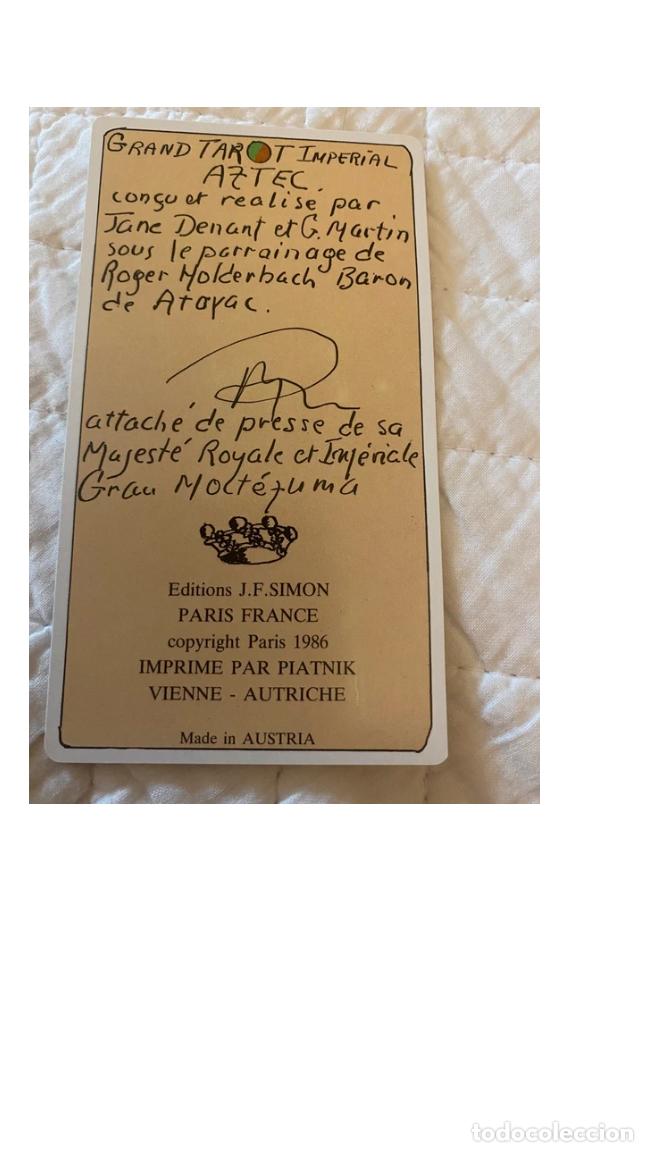 GRAND TAROT IMPERIAL
AZTEC.
conçu et realise par
Jane Denant et G. Martin
sous le parrainage de
Roger Holderbach Baron
de Atoyac.
attaché de presse de sa
Majesté Royale et Impériale
Grau Moctézuma
Editions J.F.SIMON
PARIS FRANCE
copyright Paris 1986
IMPRIME PAR PIATNIK
VIENNE - AUTRICHE
Made in AUSTRIA
todocoleccion